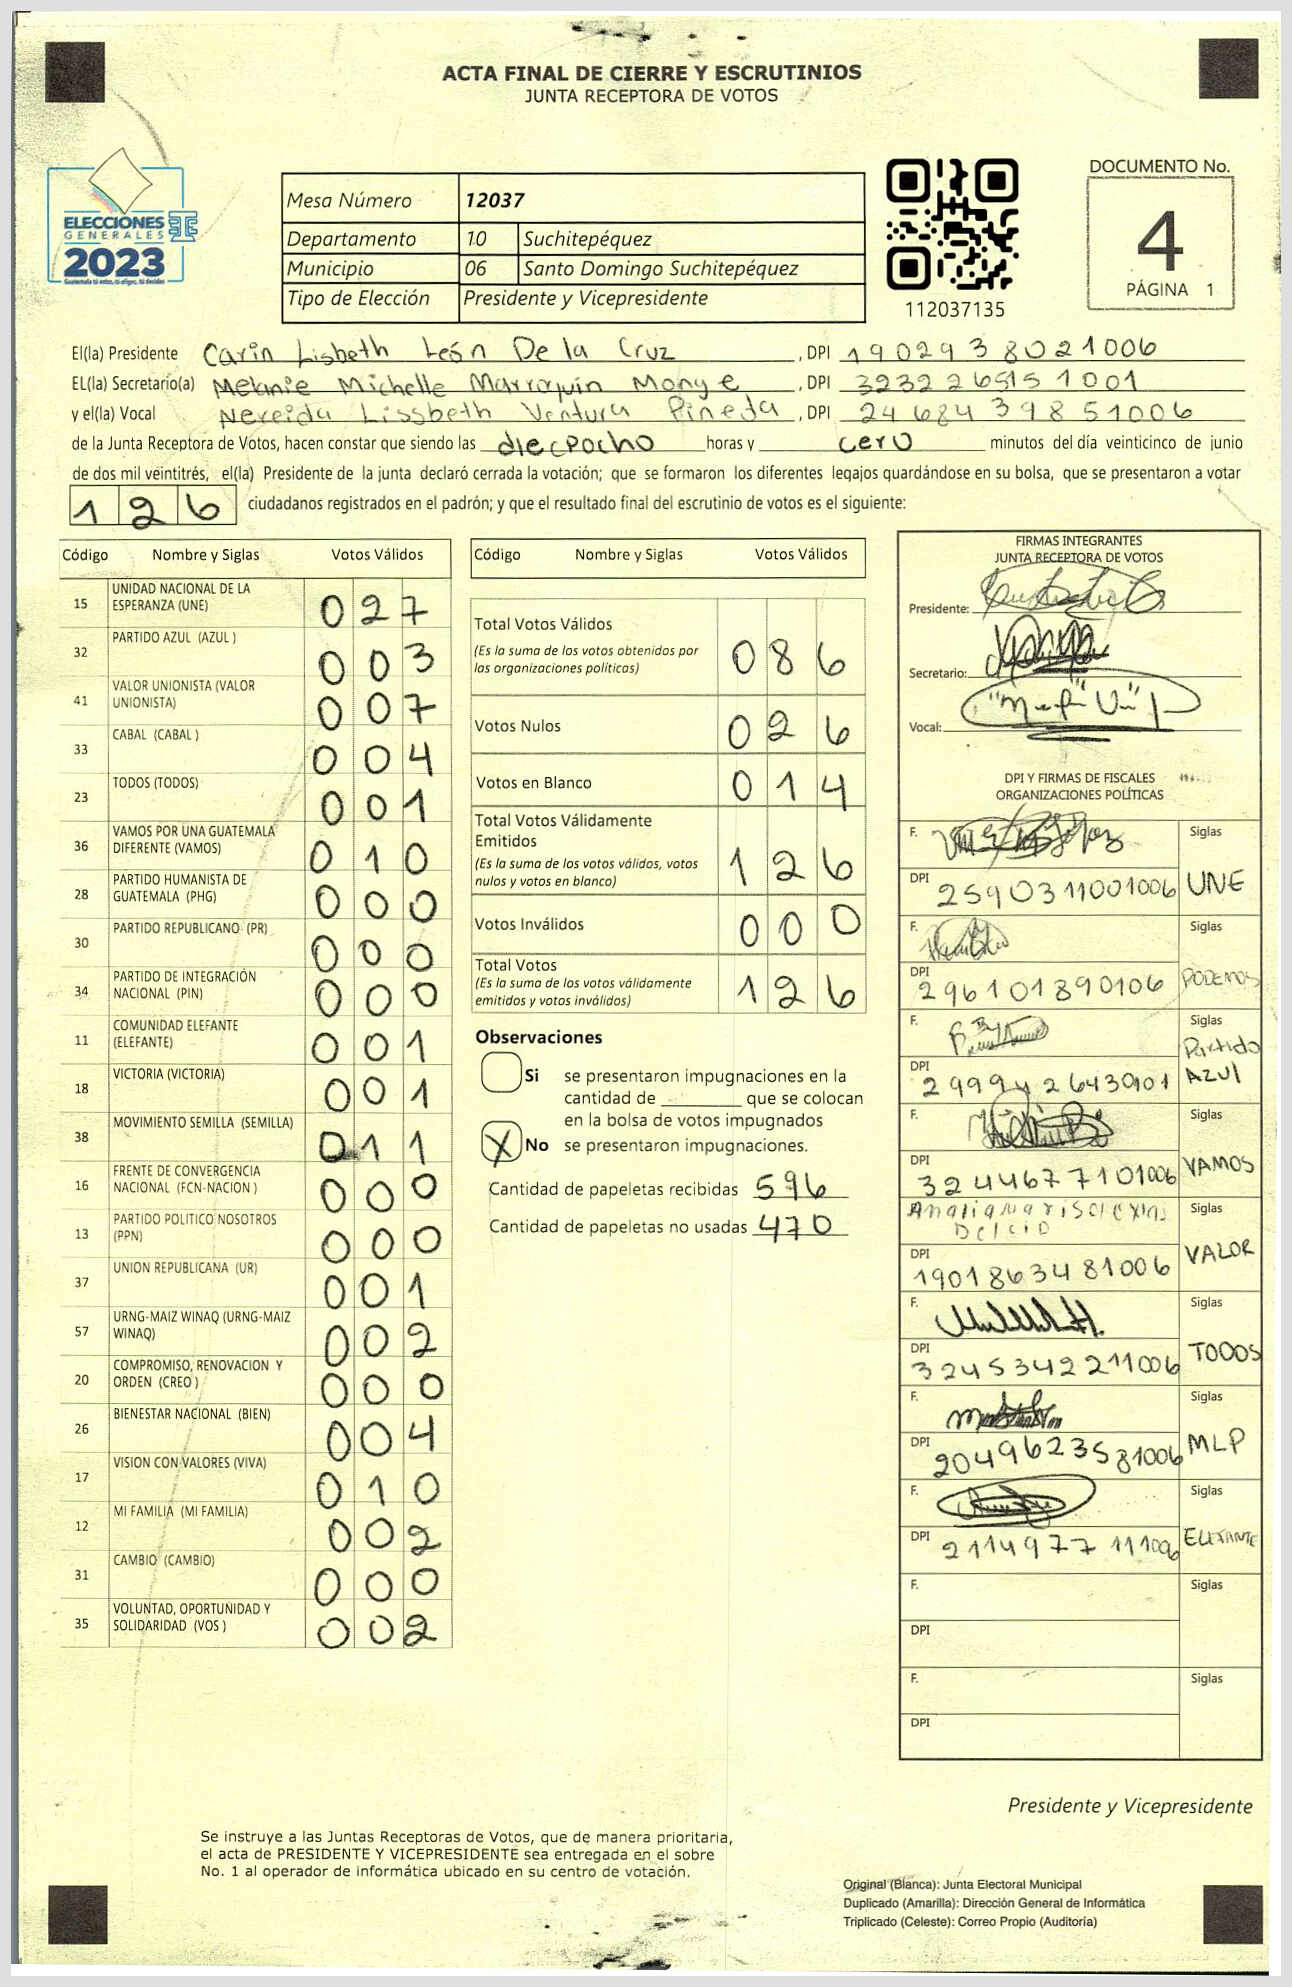 ACTA FINAL DE CIERRE Y ESCRUTINIOS
JUNTA RECEPTORA DE VOTOS
ELECCIONES
GENERALES
2023
Guatemala tú votas, tú eliges, tú decides
Mesa Número 12037
Departamento 10 Suchitepéquez
Municipio 06 Santo Domingo Suchitepéquez
Tipo de Elección Presidente y Vicepresidente
112037135
DOCUMENTO No.
4
PÁGINA 1
El(la) Presidente Carin Lisbeth León De la Cruz, DPI 1902938021006
EL(la) Secretario(a) Melanie Michelle Marroquín Monge, DPI 3232265151001
y el(la) Vocal Nereida Lissbeth Ventura Pineda, DPI 2468439851006
de la Junta Receptora de Votos, hacen constar que siendo las dieciocho horas y cero minutos del día veinticinco de junio
de dos mil veintitrés, el(la) Presidente de la junta declaró cerrada la votación; que se formaron los diferentes legajos guardándose en su bolsa, que se presentaron a votar
126 ciudadanos registrados en el padrón; y que el resultado final del escrutinio de votos es el siguiente:
Código Nombre y Siglas Votos Válidos
15 UNIDAD NACIONAL DE LA ESPERANZA (UNE) 027
32 PARTIDO AZUL (AZUL ) 003
41 VALOR UNIONISTA (VALOR UNIONISTA) 007
33 CABAL (CABAL ) 004
23 TODOS (TODOS) 001
36 VAMOS POR UNA GUATEMALA DIFERENTE (VAMOS) 010
28 PARTIDO HUMANISTA DE GUATEMALA (PHG) 000
30 PARTIDO REPUBLICANO (PR) 000
34 PARTIDO DE INTEGRACIÓN NACIONAL (PIN) 000
11 COMUNIDAD ELEFANTE (ELEFANTE) 001
18 VICTORIA (VICTORIA) 001
38 MOVIMIENTO SEMILLA (SEMILLA) 011
16 FRENTE DE CONVERGENCIA NACIONAL (FCN-NACION ) 000
13 PARTIDO POLITICO NOSOTROS (PPN) 000
37 UNION REPUBLICANA (UR) 001
57 URNG-MAIZ WINAQ (URNG-MAIZ WINAQ) 002
20 COMPROMISO, RENOVACION Y ORDEN (CREO ) 000
26 BIENESTAR NACIONAL (BIEN) 004
17 VISION CON VALORES (VIVA) 010
12 MI FAMILIA (MI FAMILIA) 002
31 CAMBIO (CAMBIO) 000
35 VOLUNTAD, OPORTUNIDAD Y SOLIDARIDAD (VOS ) 002
Código Nombre y Siglas Votos Válidos
Total Votos Válidos 086
(Es la suma de los votos obtenidos por
las organizaciones políticas)
Votos Nulos 026
Votos en Blanco 014
Total Votos Válidamente
Emitidos 126
(Es la suma de los votos válidos, votos
nulos y votos en blanco)
Votos Inválidos 000
Total Votos 126
(Es la suma de los votos válidamente
emitidos y votos inválidos)
Observaciones
Si se presentaron impugnaciones en la
cantidad de que se colocan
en la bolsa de votos impugnados
X No se presentaron impugnaciones.
Cantidad de papeletas recibidas 596
Cantidad de papeletas no usadas 470
FIRMAS INTEGRANTES
JUNTA RECEPTORA DE VOTOS
Presidente:
Secretario:
Vocal:
DPI Y FIRMAS DE FISCALES
ORGANIZACIONES POLÍTICAS
F. Siglas
DPI 2590311001006 UNE
F. Siglas
DPI 296101890106 PODEMOS
F. Siglas
DPI Partido AZUL
F. Siglas
DPI 3244677101006 VAMOS
F. Siglas
DPI 1901863481006 VALOR
F. Siglas
DPI 3245342211006 TODOS
F. Siglas
DPI 2049623581006 MLP
F. Siglas
DPI 2114977111006 ELEFANTE
F. Siglas
DPI
F. Siglas
DPI
Presidente y Vicepresidente
Se instruye a las Juntas Receptoras de Votos, que de manera prioritaria,
el acta de PRESIDENTE Y VICEPRESIDENTE sea entregada en el sobre
No. 1 al operador de informática ubicado en su centro de votación.
Original (Blanca): Junta Electoral Municipal
Duplicado (Amarilla): Dirección General de Informática
Triplicado (Celeste): Correo Propio (Auditoría)